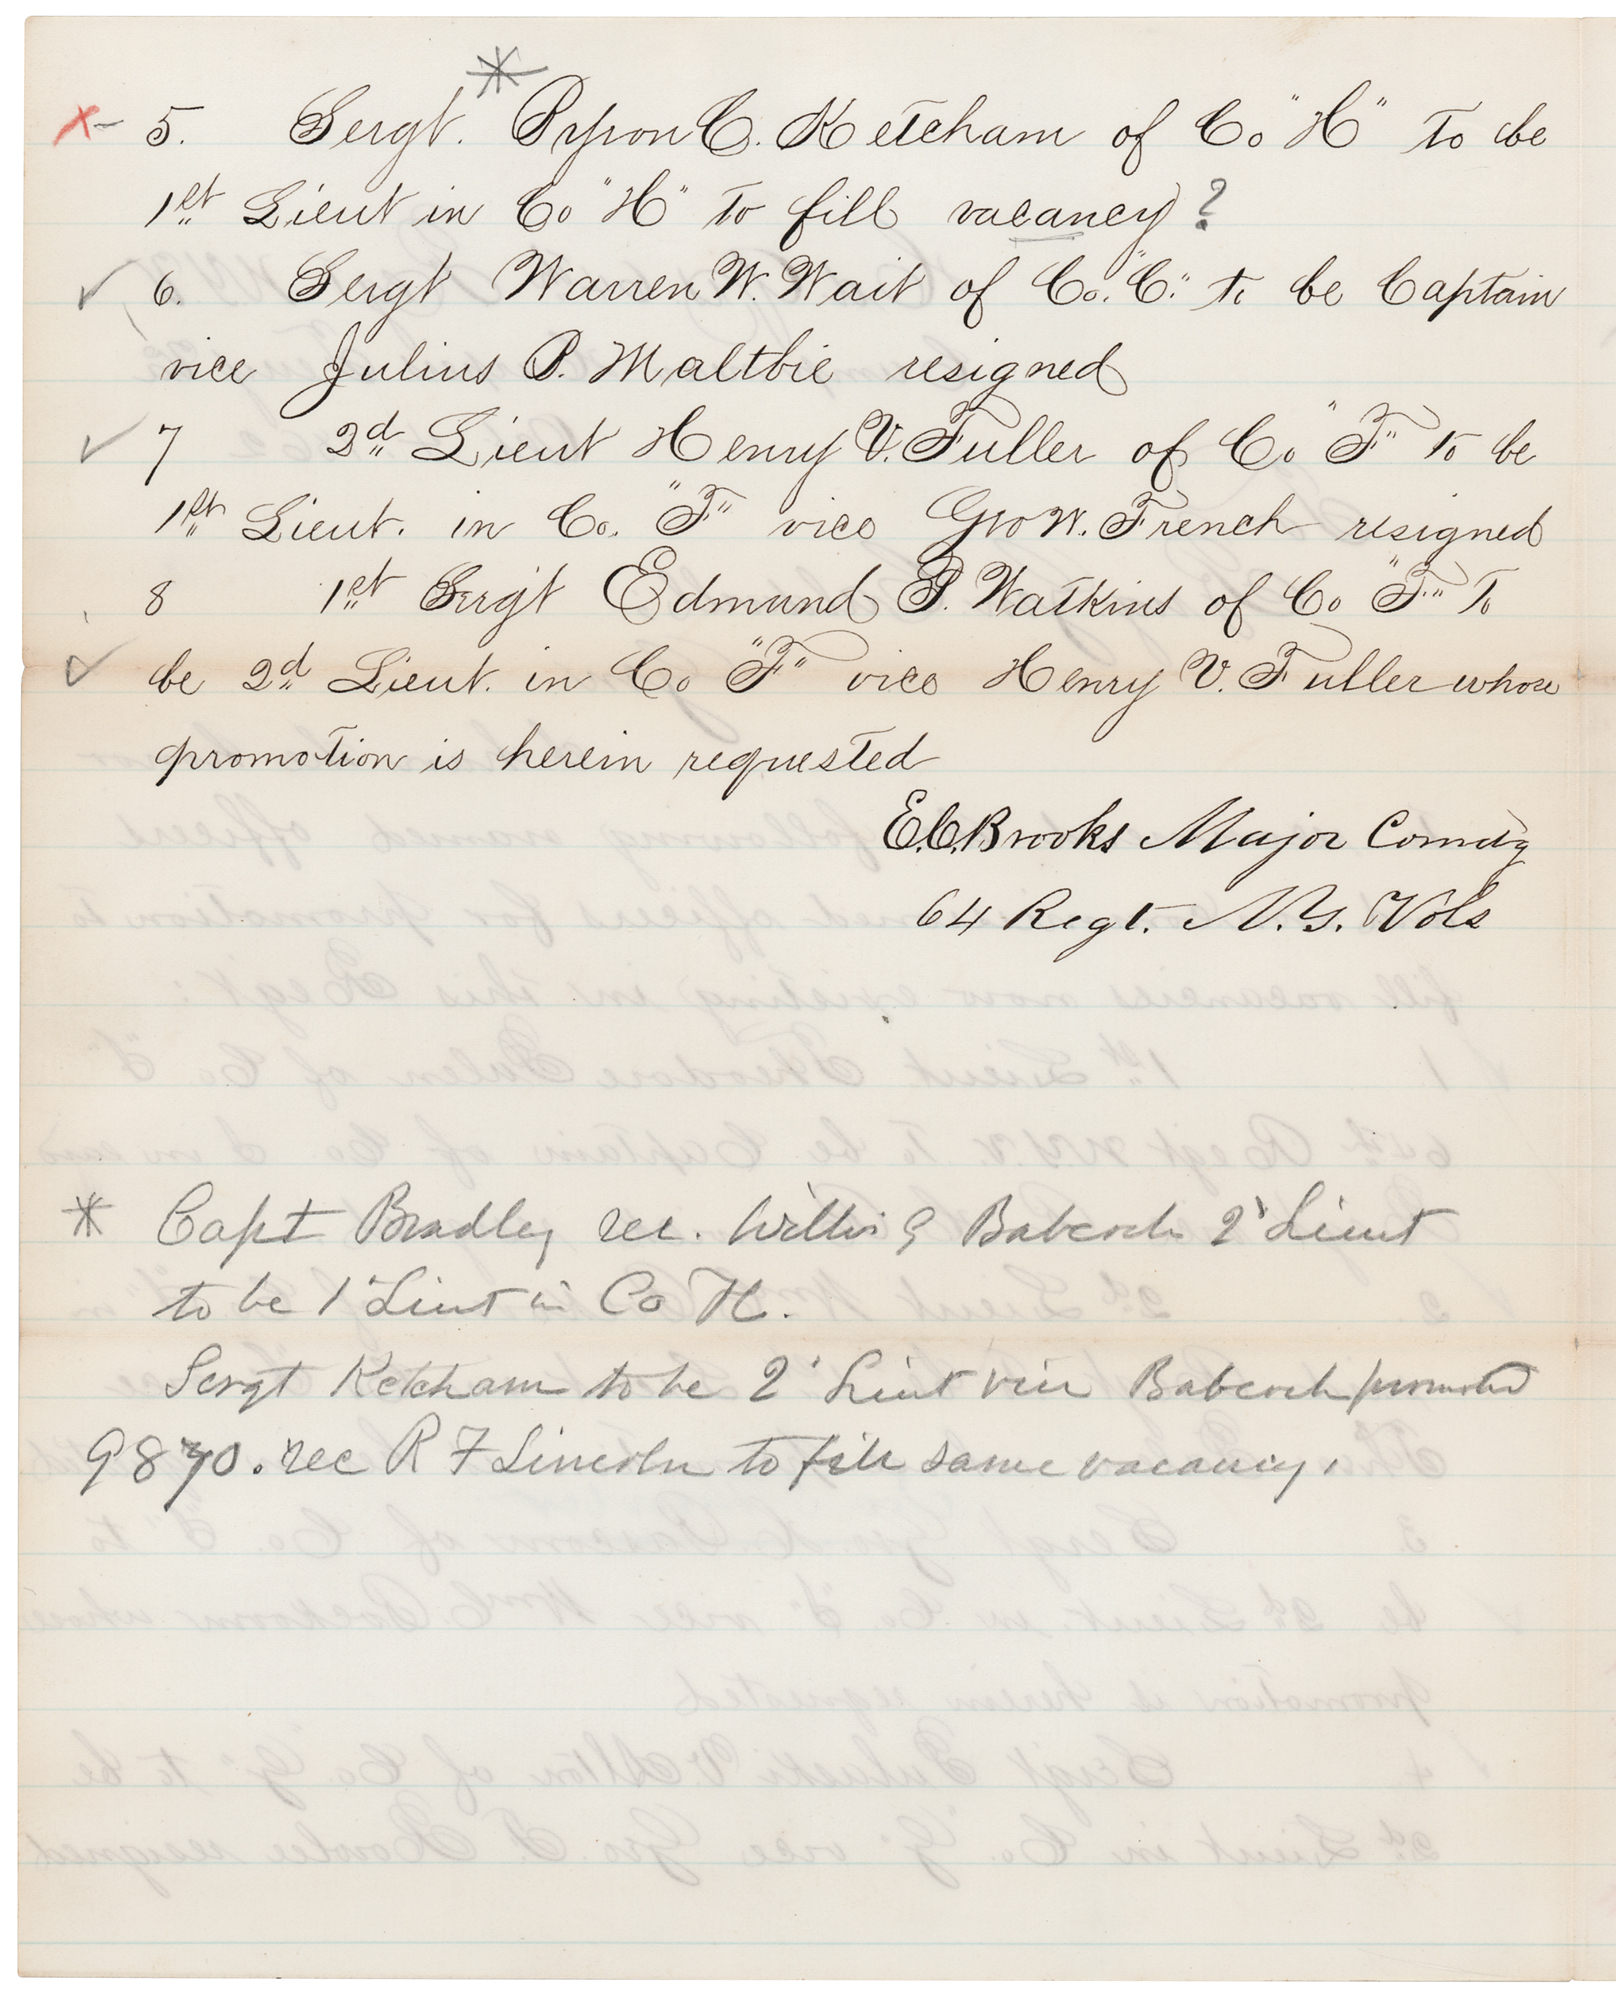 *
x - 5. Sergt. Byron C. Ketcham of Co "H" to be
1st Lieut in Co "H" to fill vacancy ?
✓ 6. Sergt Warren W. Wait of Co. "C." to be Captain
vice Julius P. Maltbie resigned
✓ 7 2d Lieut Henry V. Fuller of Co "F" to be
1st Lieut. in Co. "F" vice Geo W. French resigned
8 1st Sergt Edmund P. Watkins of Co "F" to
✓ be 2d Lieut. in Co "F" vice Henry V. Fuller whose
promotion is herein requested
E.C. Brooks Major Comdg
64 Regt. N.Y. Vols
* Capt Bradley rec. Willis G Babcock 2' Lieut
to be 1' Lieut in Co H.
Sergt Ketcham to be 2' Lieut vice Babcock promoted
9870. rec R F Lincoln to fill same vacancy.